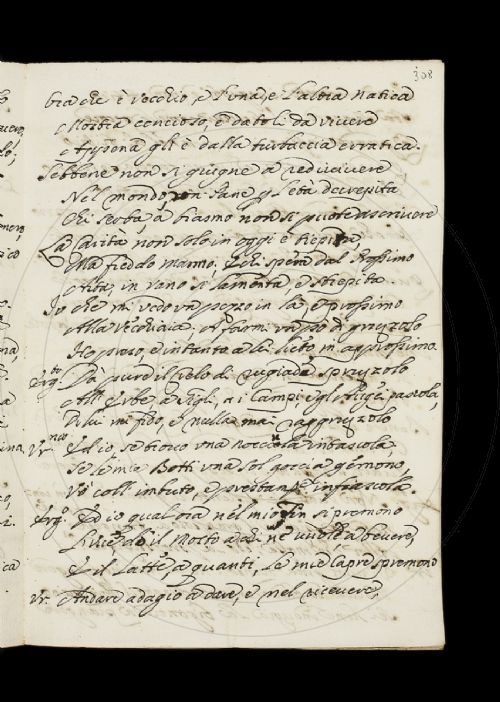 308
bra che è vecchio, e l'una, e l'altra natica
Mostra concioso, e datoli da vivere
gli è dalla turbaccia erratica.
Sebbene non si giugne a redivivere
Nel mondo, con Pane l'età decrepita
Chi serba, a biasmo non si puote ascrivere
La Carità non solo in oggi è tiepida,
Ma freddo marmo, e chi spera dal Prossimo
Aita, in vano si lamenta, e strepita
Io che mi vedo un pezzo in là, e prossimo
Alla Vecchiaia, a farmi un po' di gruzzolo
Ho preso, e intanto a lui lieto m'approssimo.
Erg.to Dà pure il Cielo di rugiada spruzzolo
All'Erbe, a i Gigli, a i Campi, e gli
Di lui mi fido, e nulla mai raggruzzolo
Ur. Ed io, se trovo una nocciola intascola,
Se le mie Botti una sol goccia gemono,
Vò coll'imbuto, e infiascola.
Erg. Ed io qualora nel mio Tin si premono
L'Uve, dò il Mosto a chi ne vuole a bevere,
E il Latte, a quanti, le mie Capre spremono
Ur. Andare adagio a dare, e nel ricevere,